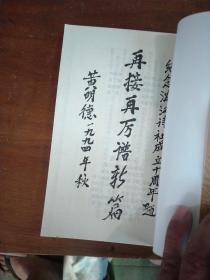 纪念湛江诗社成立十周年题
再接再厉谱新篇
黄明德一九九四年秋